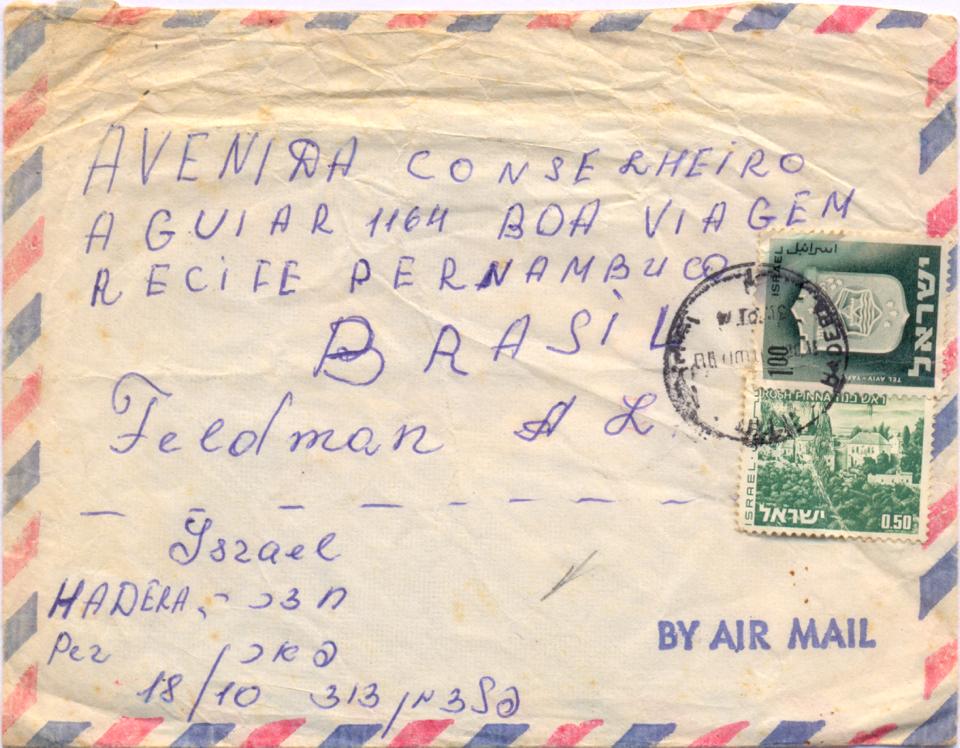 AVENIDA CONSELHEIRO
AGUIAR 1164 BOA VIAGEM
RECIFE PERNAMBUCO
BRASIL
Feldman A L.
اسرائيل
ISRAEL
ישראל
1.00
TEL AVIV - YAFO
HADERA
ROSH PINNA ראש פנה
ISRAEL
ישראל
0.50
Israel
HADERA
18/10
BY AIR MAIL